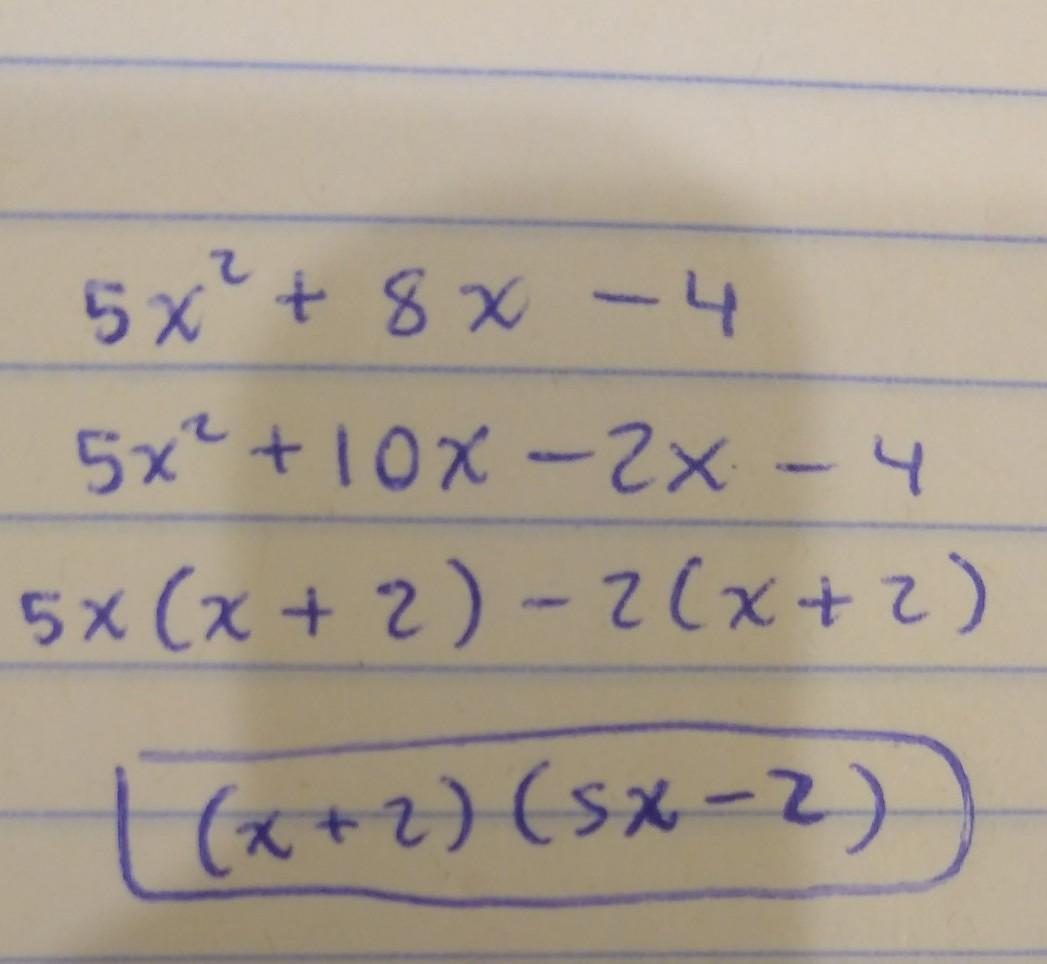 5x² + 8x - 4
5x² + 10x - 2x - 4
5x(x + 2) - 2(x + 2)
(x + 2)(5x - 2)